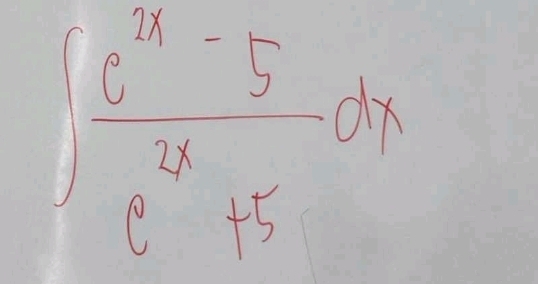 ∫ e^{2x} - 5 / e^{2x} + 5 dx